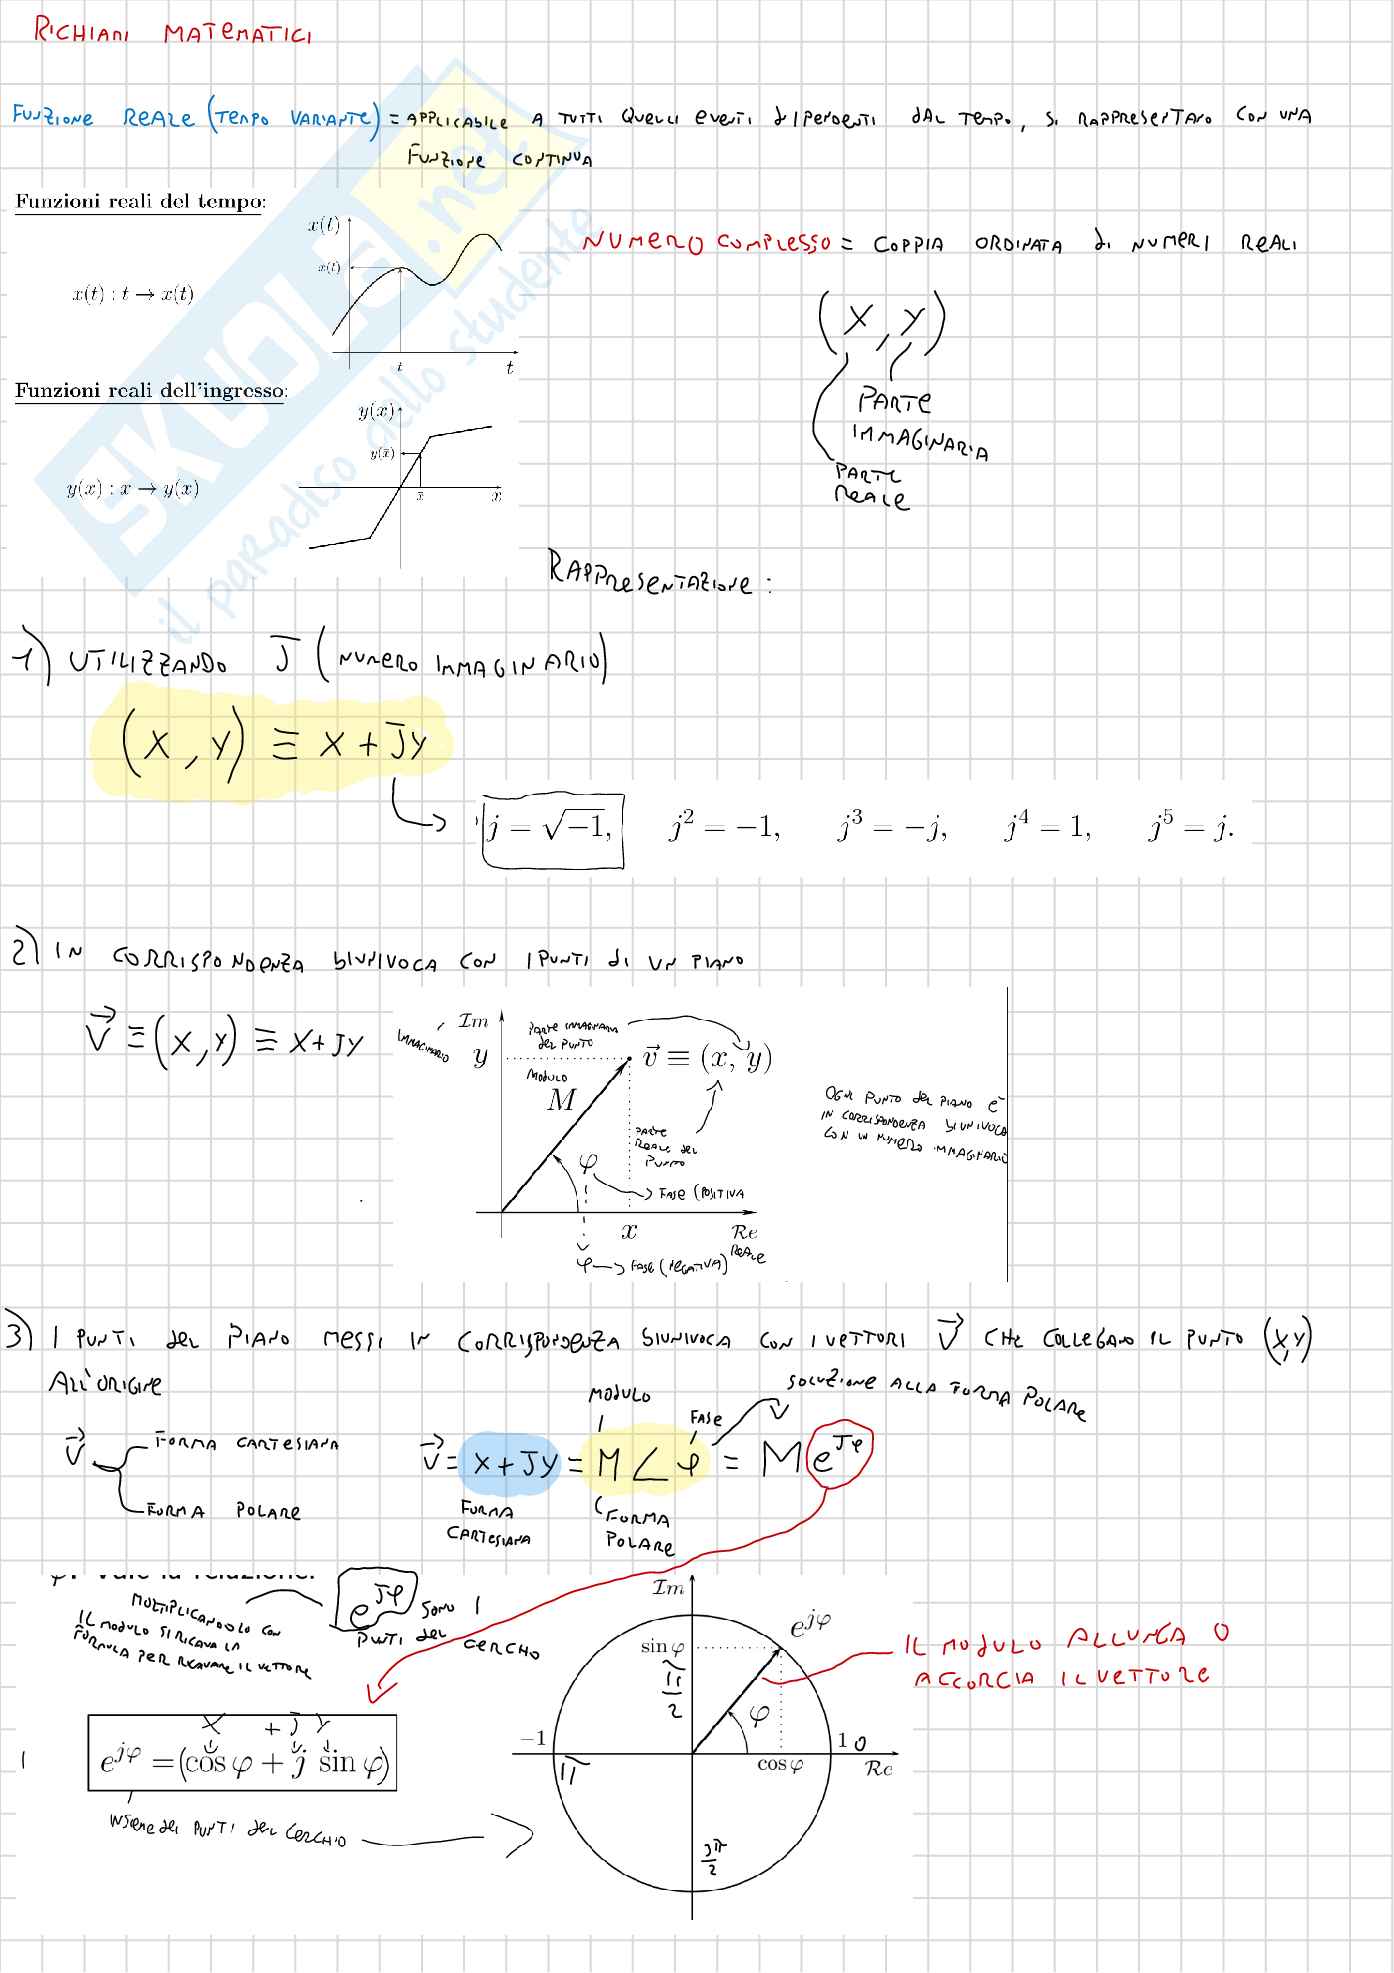 RICHIAMI MATEMATICI
FUNZIONE REALE (TEMPO VARIANTE) = APPLICABILE A TUTTI QUEGLI EVENTI DIPENDENTI DAL TEMPO, SI RAPPRESENTANO CON UNA
FUNZIONE CONTINUA
Funzioni reali del tempo:
x(t)
x(t)
x(t) : t → x(t)
t
t
NUMERO COMPLESSO = COPPIA ORDINATA DI NUMERI REALI
(X, Y)
PARTE
IMMAGINARIA
PARTE
REALE
Funzioni reali dell'ingresso:
y(x)
y(x̄)
y(x) : x → y(x)
x̄
x
SKUOLA.net
il paradiso dello studente
RAPPRESENTAZIONE:
1) UTILIZZANDO J (NUMERO IMMAGINARIO)
(X, Y) ≡ X + JY
j = √-1, j² = -1, j³ = -j, j⁴ = 1, j⁵ = j.
2) IN CORRISPONDENZA BIUNIVOCA CON I PUNTI DI UN PIANO
V⃗ ≡ (X, Y) ≡ X + JY
IMMAGINARIO
Im
PARTE IMMAGINARIA
DEL PUNTO
y
v⃗ ≡ (x, y)
MODULO
M
PARTE
REALE DEL
PUNTO
φ
FASE (POSITIVA
x
Re
REALE
φ → FASE (NEGATIVA)
OGNI PUNTO DEL PIANO È
IN CORRISPONDENZA BIUNIVOCA
CON UN NUMERO IMMAGINARIO
3) I PUNTI DEL PIANO MESSI IN CORRISPONDENZA BIUNIVOCA CON I VETTORI V⃗ CHE COLLEGANO IL PUNTO (X,Y)
ALL'ORIGINE
V⃗
FORMA CARTESIANA
FORMA POLARE
MODULO
FASE
SOLUZIONE ALLA FORMA POLARE
V⃗ = X + JY = M ∠ φ = M e^Jφ
FORMA
CARTESIANA
FORMA
POLARE
φ. Vale la relazione:
MOLTIPLICANDOLO CON
IL MODULO SI RICAVA LA
FORMULA PER RICAVARE IL VETTORE
e^Jφ SONO I
PUNTI DEL CERCHIO
X + J Y
e^jφ = (cos φ + j sin φ)
INSIEME DEI PUNTI DEL CERCHIO
Im
sin φ
e^jφ
π/2
φ
-1
π
cos φ
1 0
Re
3π/2
IL MODULO ALLUNGA O
ACCORCIA IL VETTORE